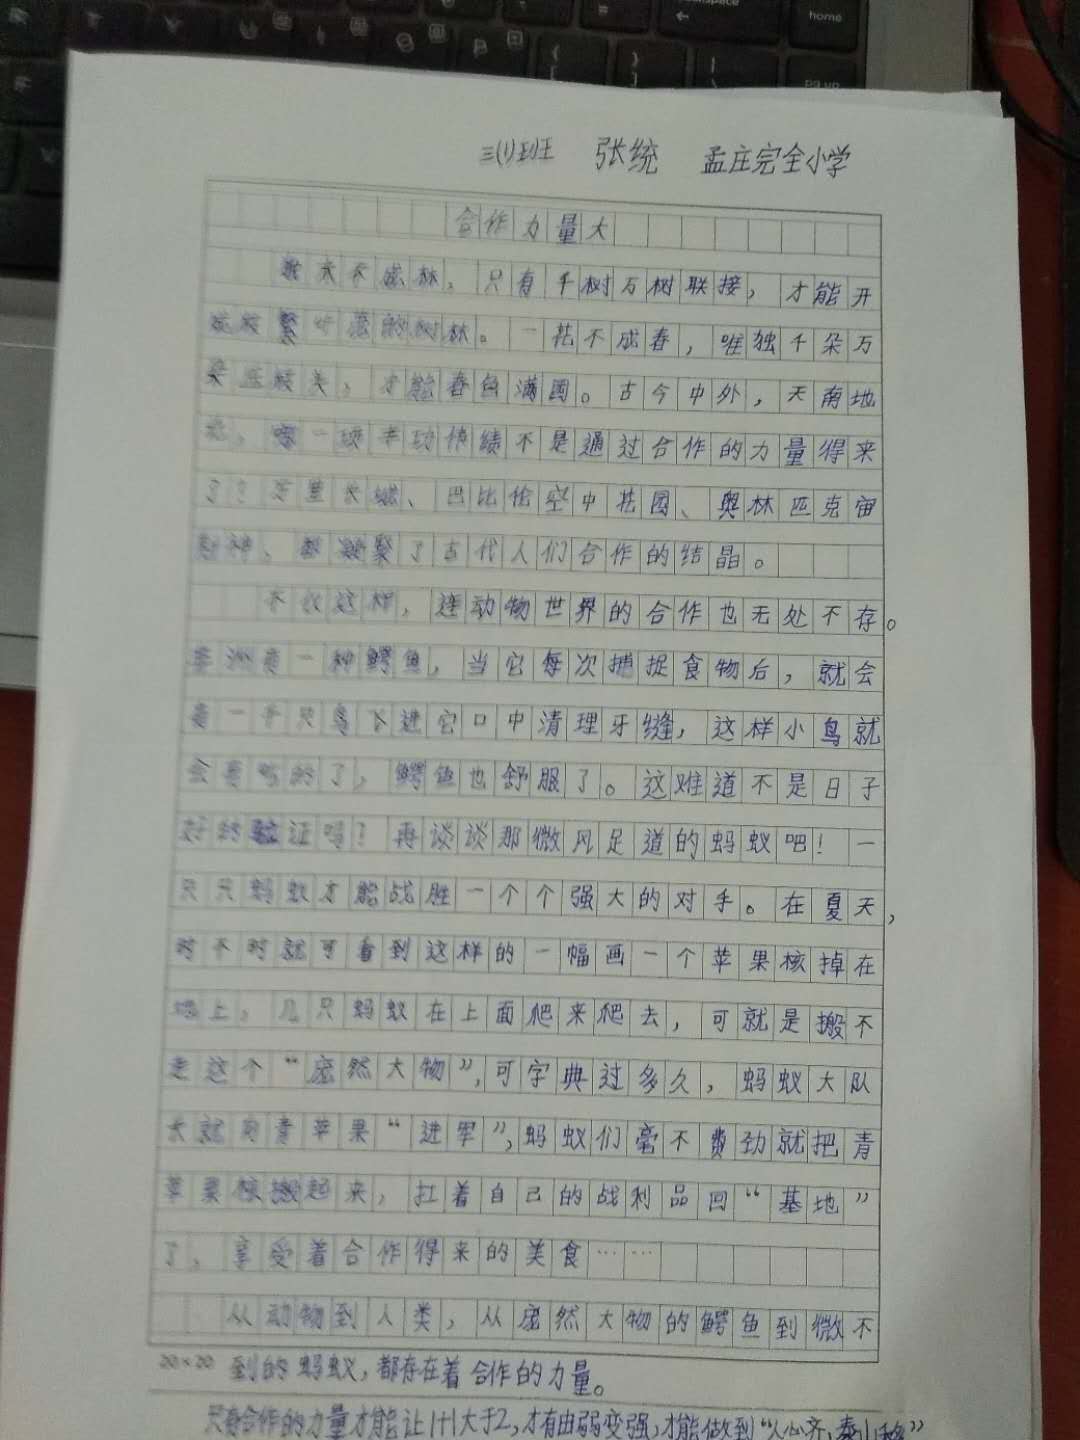 三(1)班 张统 孟庄完全小学
合作力量大
独木不成林，只有千树万树联接，才能开
繁叶茂的树林。一花不成春，唯独千朵万
朵压枝美，才能春色满园。古今中外，天南地
北，哪一项丰功伟绩不是通过合作的力量得来
了？万里长城、巴比伦空中花园、奥林匹克宙
斯神、都凝聚了古代人们合作的结晶。
不仅这样，连动物世界的合作也无处不存。
非洲有一种鳄鱼，当它每次捕捉食物后，就会
有一千只鸟飞进它口中清理牙缝，这样小鸟就
会有吃的了，鳄鱼也舒服了。这难道不是日子
好的验证吗？再谈谈那微风足道的蚂蚁吧！一
只只蚂蚁才能战胜一个个强大的对手。在夏天，
时不时就可看到这样的一幅画一个苹果核掉在
地上，几只蚂蚁在上面爬来爬去，可就是搬不
走这个“庞然大物”，可字典过多久，蚂蚁大队
长就向青苹果“进军”，蚂蚁们毫不费劲就把青
苹果核搬起来，扛着自己的战利品回“基地”
了，享受着合作得来的美食……
从动物到人类，从庞然大物的鳄鱼到微不
20×20 到的蚂蚁，都存在着合作的力量。
只有合作的力量才能让1+1大于2，才有由弱变强，才能做到“人心齐，泰山移”